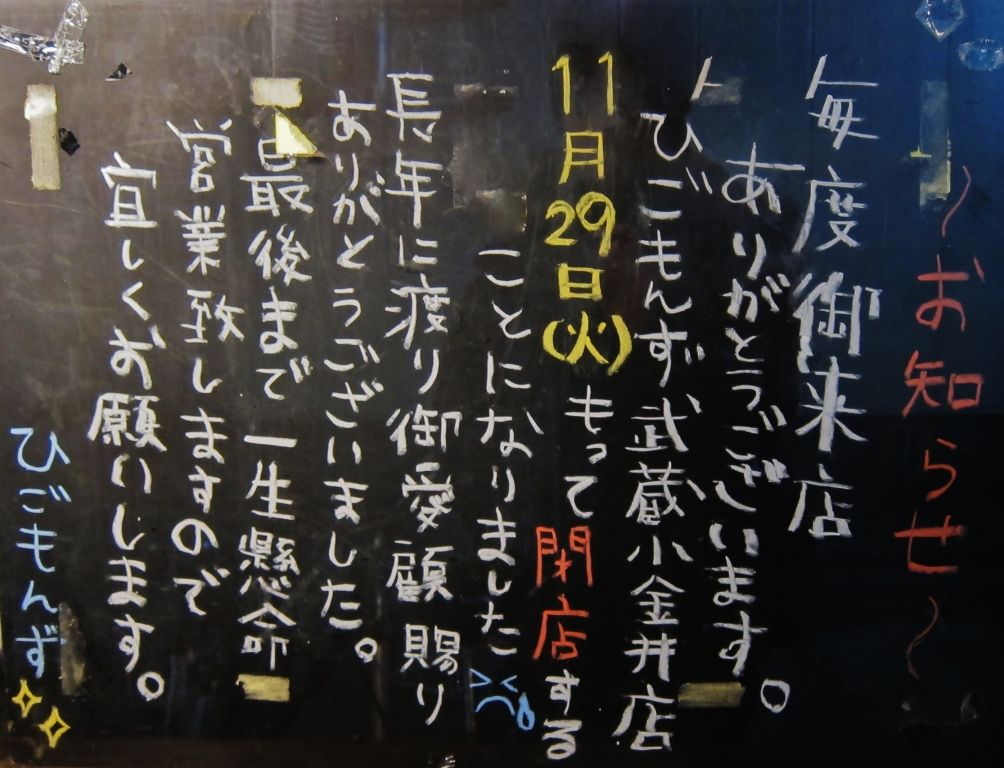 〜お知らせ〜
毎度御来店
ありがとうございます。
ひごもんず武蔵小金井店
11月29日(火)もって閉店する
ことになりました
長年に渡り御愛顧賜り
ありがとうございました。
最後まで一生懸命
営業致しますので
宜しくお願いします。
ひごもんず